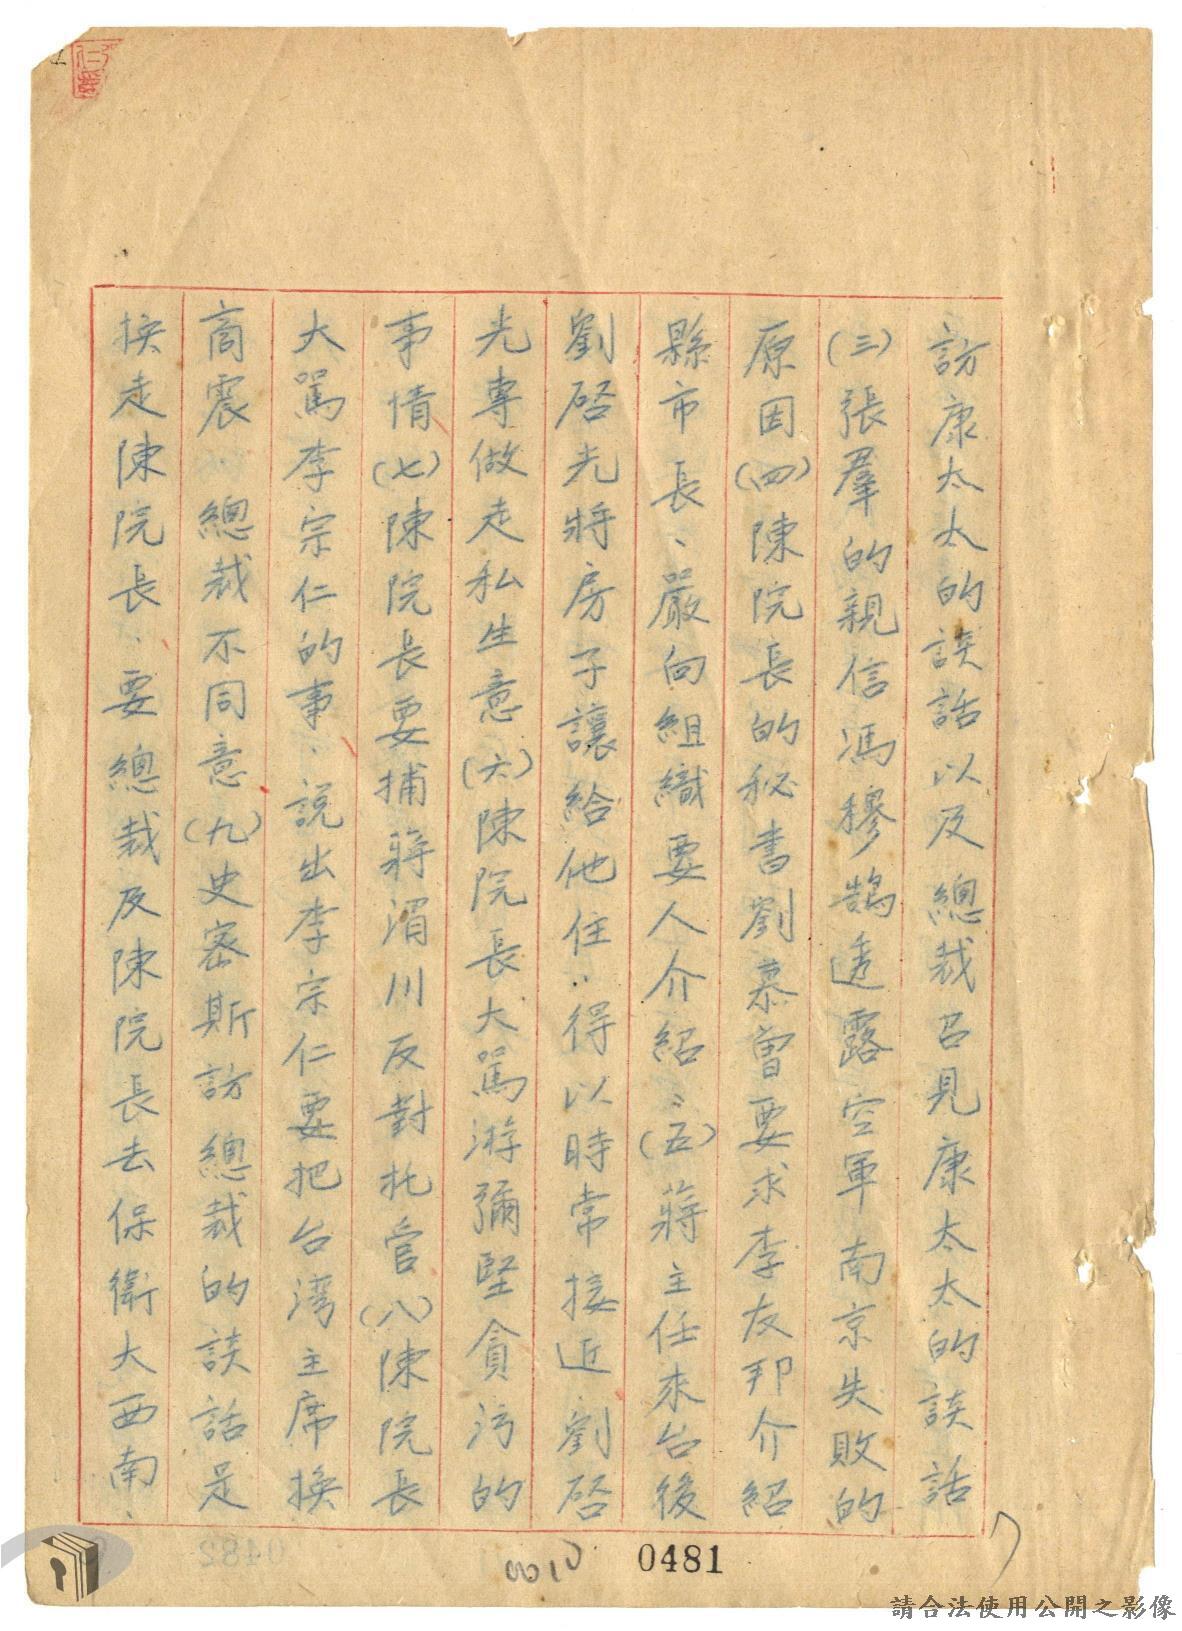 訪康太太的談話以及總裁召見康太太的談話
(三)張羣的親信馮穆鵠透露空軍南京失敗的
原因(四)陳院長的秘書劉慕曾要求李友邦介紹
縣市長、嚴向組織要人介紹、(五)蔣主任來台後
劉啓光將房子讓給他住、得以時常接近劉啓
光專做走私生意(六)陳院長大罵游彌堅貪污的
事情(七)陳院長要捕蔣渭川反對托管(八)陳院長
大罵李宗仁的事、說出李宗仁要把台灣主席換
商震 總裁不同意(九)史密斯訪總裁的談話是
換走陳院長、要總裁及陳院長去保衛大西南、
0481
0482
請合法使用公開之影像